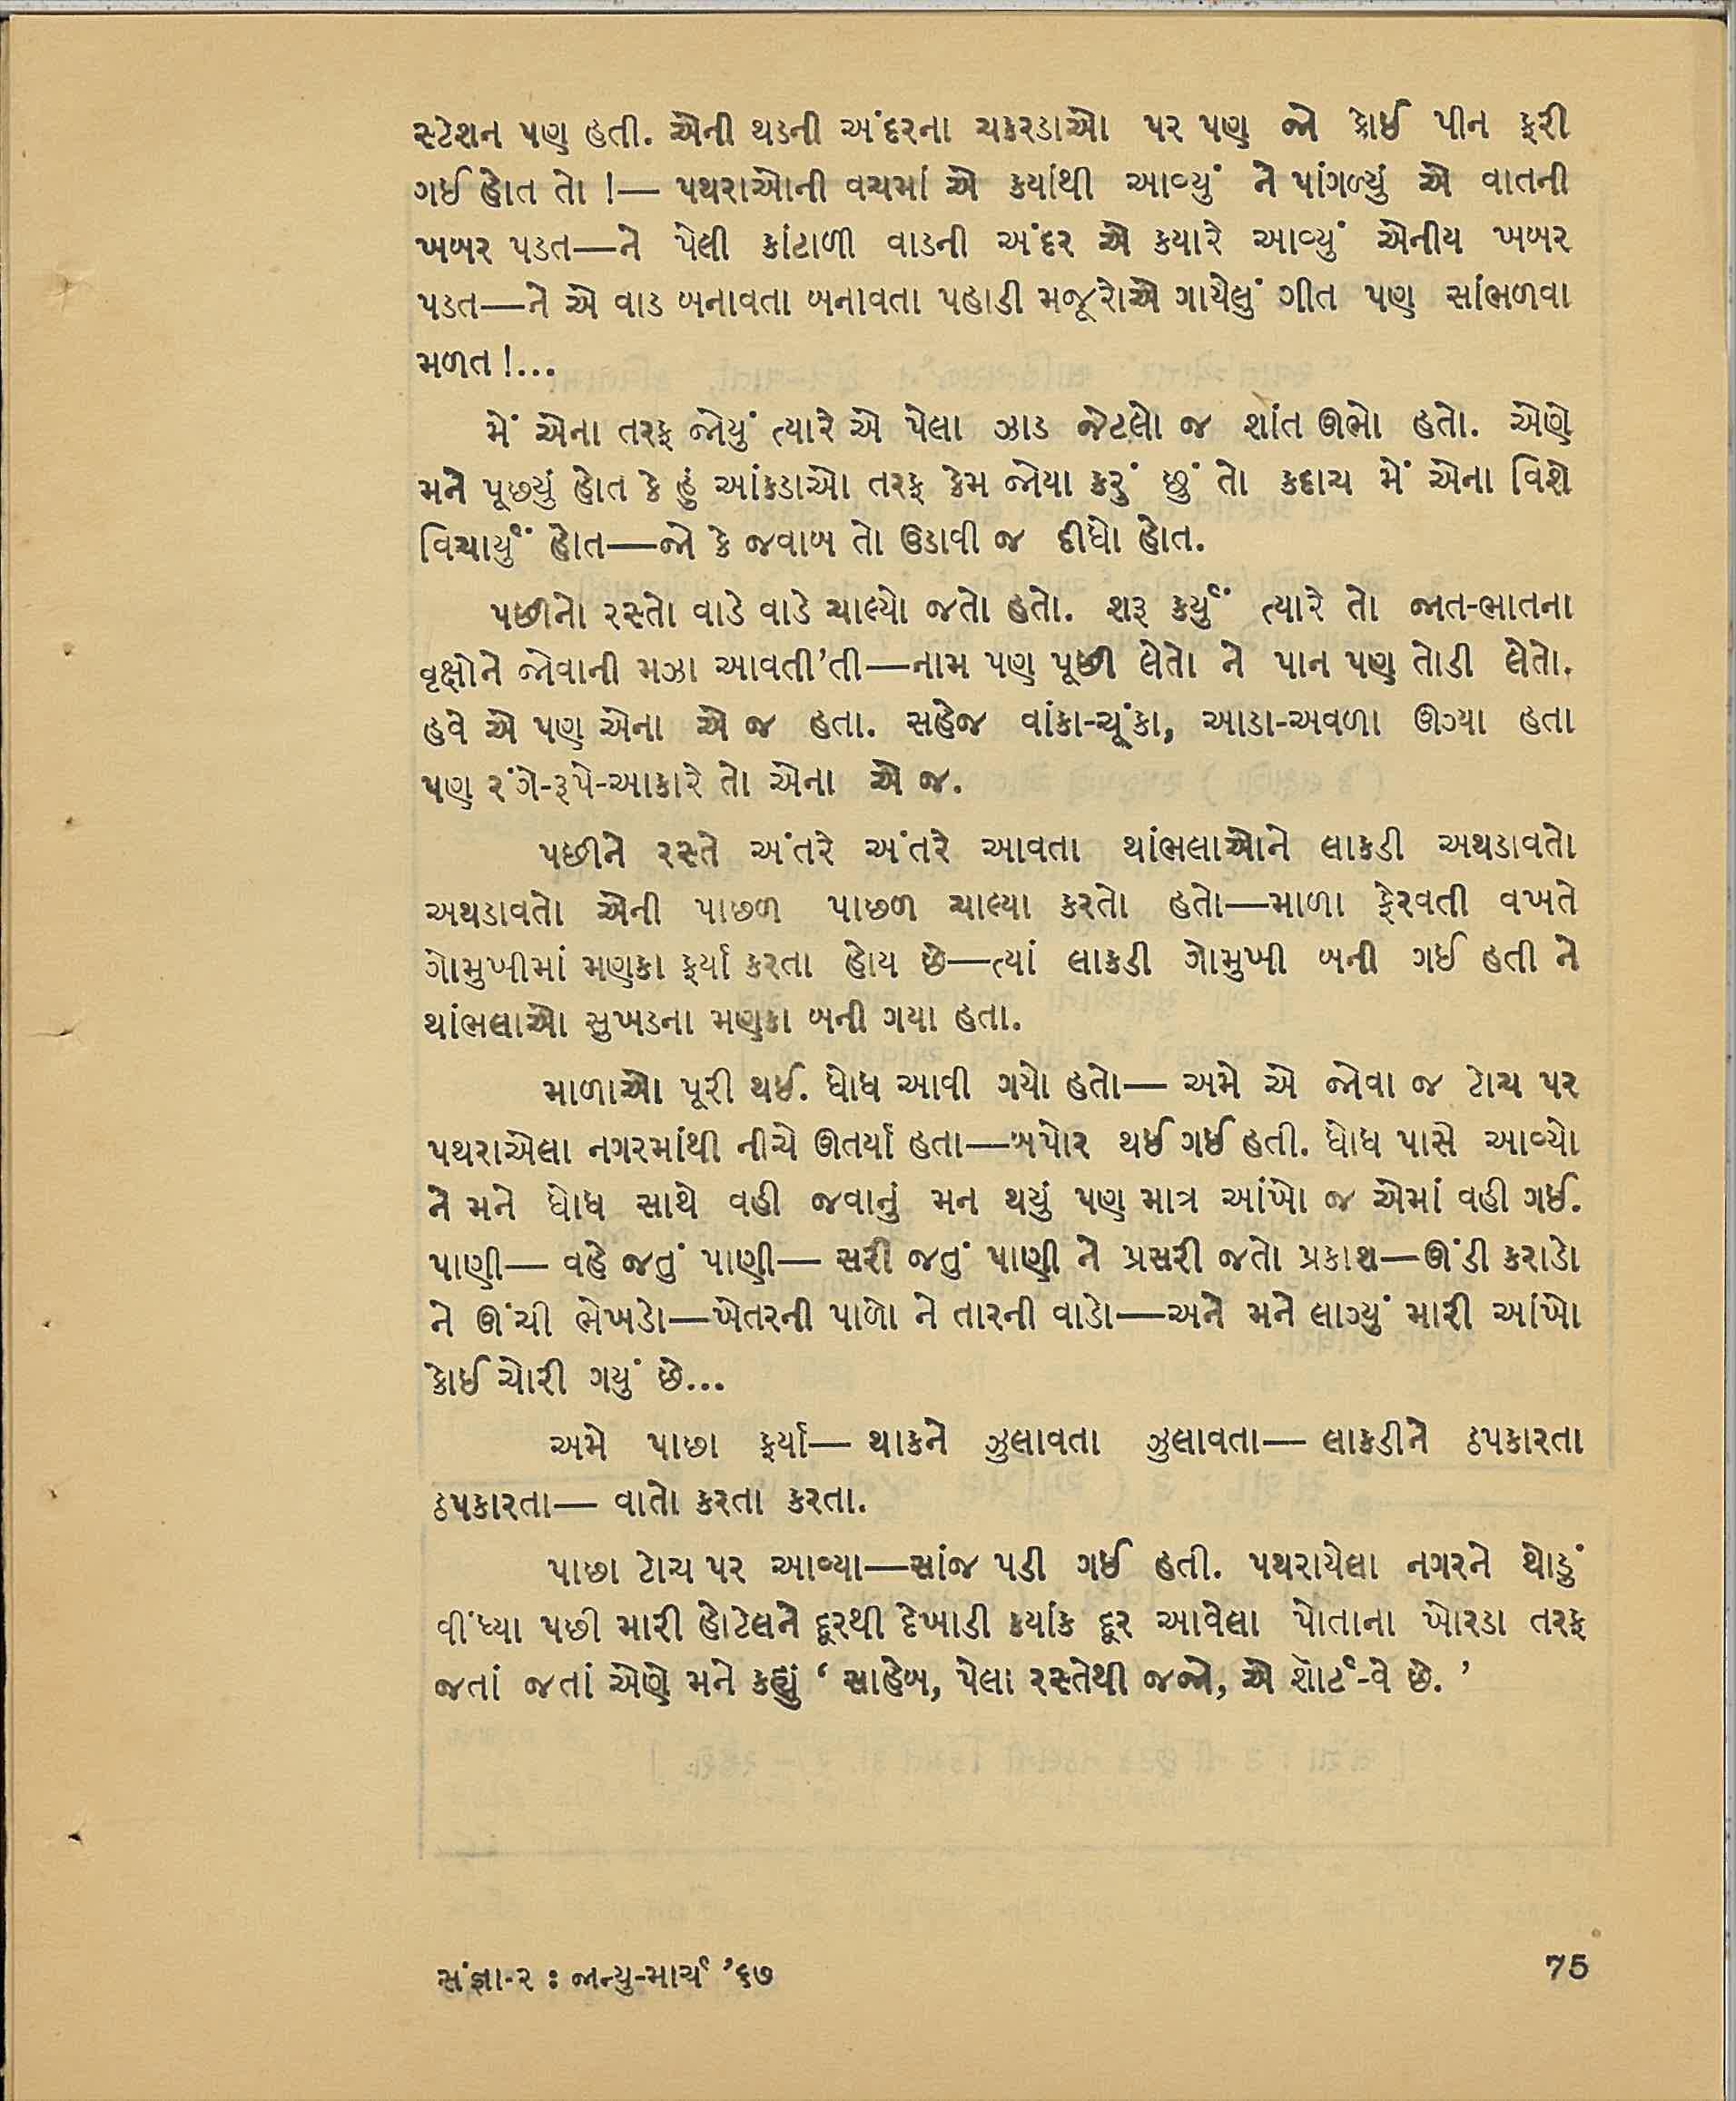 સ્ટેશન પણ હતી. એની થડની અંદરના ચકરડાઓ પર પણ જો કોઈ પીન ફરી
ગઈ હોત તો !— પથરાઓની વચમાં એ કયાંથી આવ્યું ને પાંગળ્યું એ વાતની
ખબર પડત—ને પેલી કાંટાળી વાડની અંદર એ કયારે આવ્યું એનીય ખબર
પડત—ને એ વાડ બનાવતા બનાવતા પહાડી મજૂરોએ ગાયેલું ગીત પણ સાંભળવા
મળત !...
મેં એના તરફ જોયું ત્યારે એ પેલા ઝાડ જેટલો જ શાંત ઊભો હતો. એણે
મને પૂછ્યું હોત કે હું આંકડાઓ તરફ કેમ જોયા કરું છું તો કદાચ મેં એના વિશે
વિચાર્યું હોત—જો કે જવાબ તો ઉડાવી જ દીધો હોત.
પછીનો રસ્તો વાડે વાડે ચાલ્યો જતો હતો. શરૂ કર્યું ત્યારે તો જાત-ભાતના
વૃક્ષોને જોવાની મઝા આવતી'તી—નામ પણ પૂછી લેતો ને પાન પણ તોડી લેતો.
હવે એ પણ એના એ જ હતા. સહેજ વાંકા-ચૂંકા, આડા-અવળા ઊગ્યા હતા
પણ રંગે-રૂપે-આકારે તો એના એ જ.
પછીને રસ્તે અંતરે અંતરે આવતા થાંભલાઓને લાકડી અથડાવતો
અથડાવતો એની પાછળ પાછળ ચાલ્યા કરતો હતો—માળા ફેરવતી વખતે
ગોમુખીમાં મણકા ફર્યા કરતા હોય છે—ત્યાં લાકડી ગોમુખી બની ગઈ હતી ને
થાંભલાઓ સુખડના મણકા બની ગયા હતા.
માળાઓ પૂરી થઈ. ધોધ આવી ગયો હતો— અમે એ જોવા જ ટોચ પર
પથરાએલા નગરમાંથી નીચે ઊતર્યા હતા—બપોર થઈ ગઈ હતી. ધોધ પાસે આવ્યો
ને મને ધોધ સાથે વહી જવાનું મન થયું પણ માત્ર આંખો જ એમાં વહી ગઈ.
પાણી— વહે જતું પાણી— સરી જતું પાણી ને પ્રસરી જતો પ્રકાશ—ઊંડી કરાડો
ને ઊંચી ભેખડો—ખેતરની પાળો ને તારની વાડો—અને મને લાગ્યું મારી આંખો
કોઈ ચોરી ગયું છે...
અમે પાછા ફર્યા— થાકને ઝુલાવતા ઝુલાવતા— લાકડીને ઠપકારતા
ઠપકારતા— વાતો કરતા કરતા.
પાછા ટોચ પર આવ્યા—સાંજ પડી ગઈ હતી. પથરાયેલા નગરને થોડું
વીંધ્યા પછી મારી હોટેલને દૂરથી દેખાડી કયાંક દૂર આવેલા પોતાના ખોરડા તરફ
જતાં જતાં એણે મને કહ્યું ‘ સાહેબ, પેલા રસ્તેથી જજો, એ શૉર્ટ-વે છે. ’
સંજ્ઞા-૨ : જાન્યુ-માર્ચ '૬૭
75